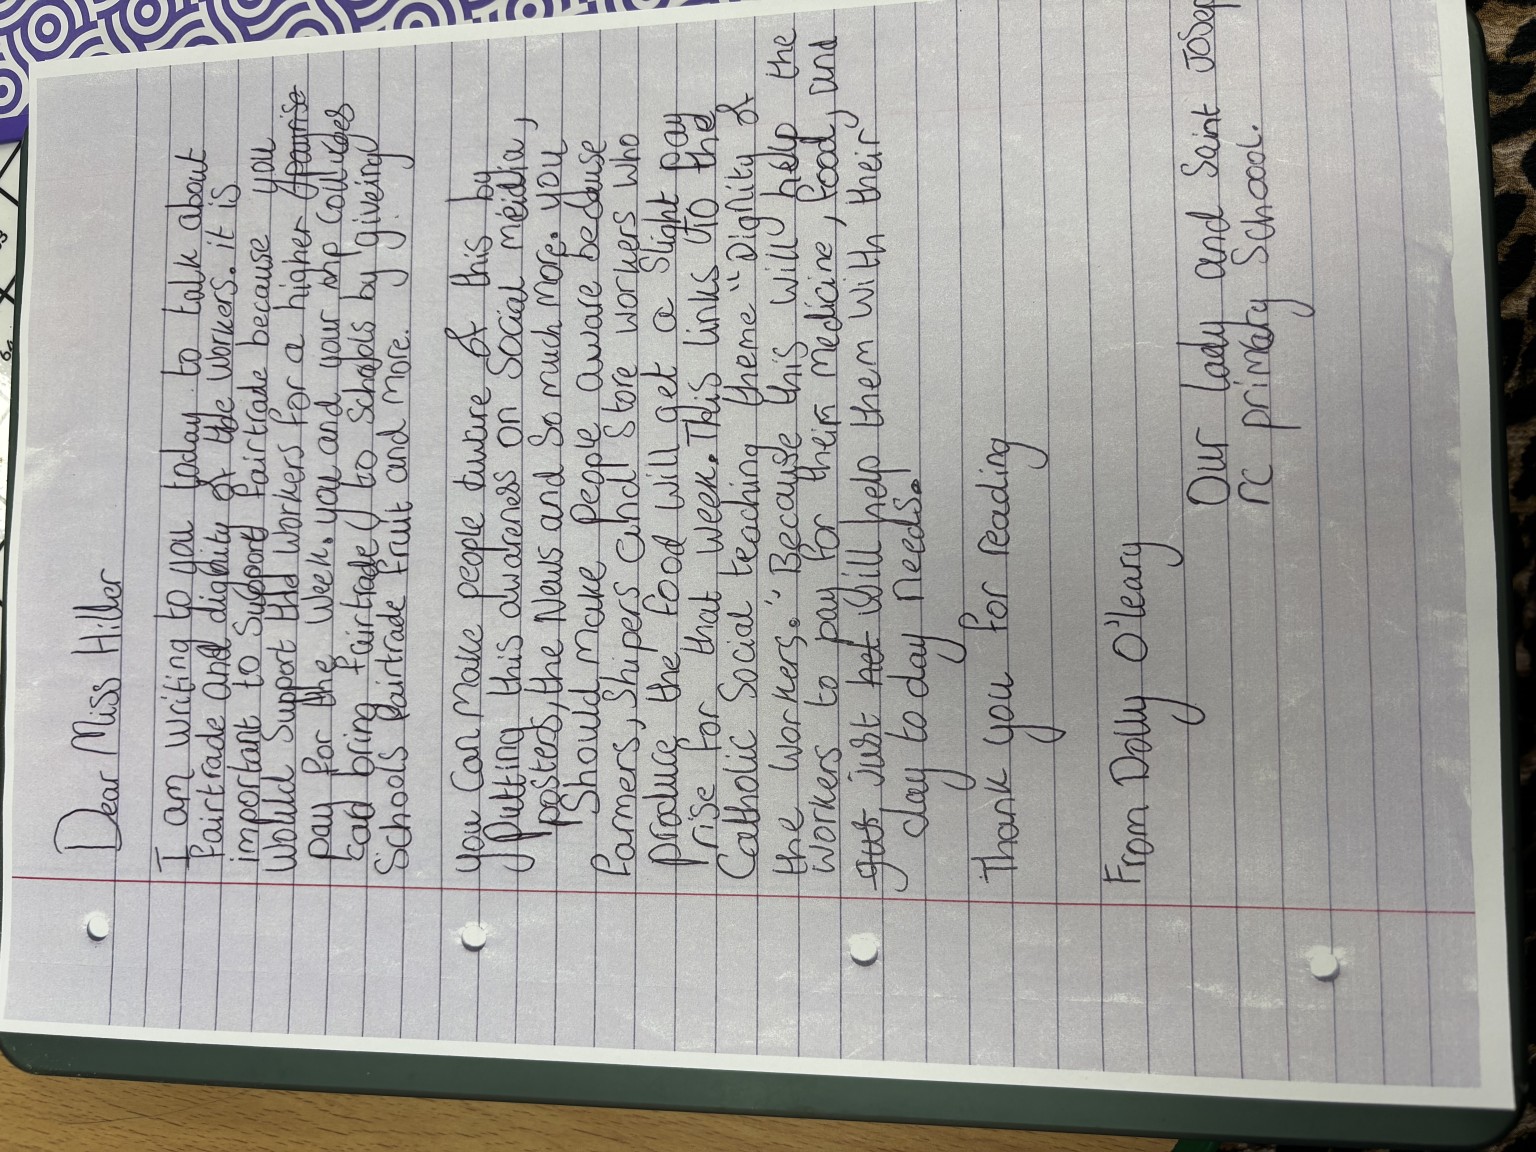 Dear Miss Hiller
I am writing to you today to talk about
fairtrade and dignity of the workers. it is
important to Support fairtrade because you
would Support the workers for a higher
pay for the week. you and your mp collueges
bring fairtrade to schools by giveing
Schools fairtrade fruit and more.
you can make people awure of this by
putting this awareness on Social meidia,
posters, the News and so much more. you
Should make people aware because
farmers, Shipers and Store workers who
produce the food will get a slight pay
rise for that week. This links to the
Catholic Social teaching theme "Dignity of
the workers". Because this will help the
workers to pay for their medicine, food, and
just will help them with their
day to day needs.
Thank you for reading
From Dolly O'leary
Our lady and Saint Josep
rc primary School.